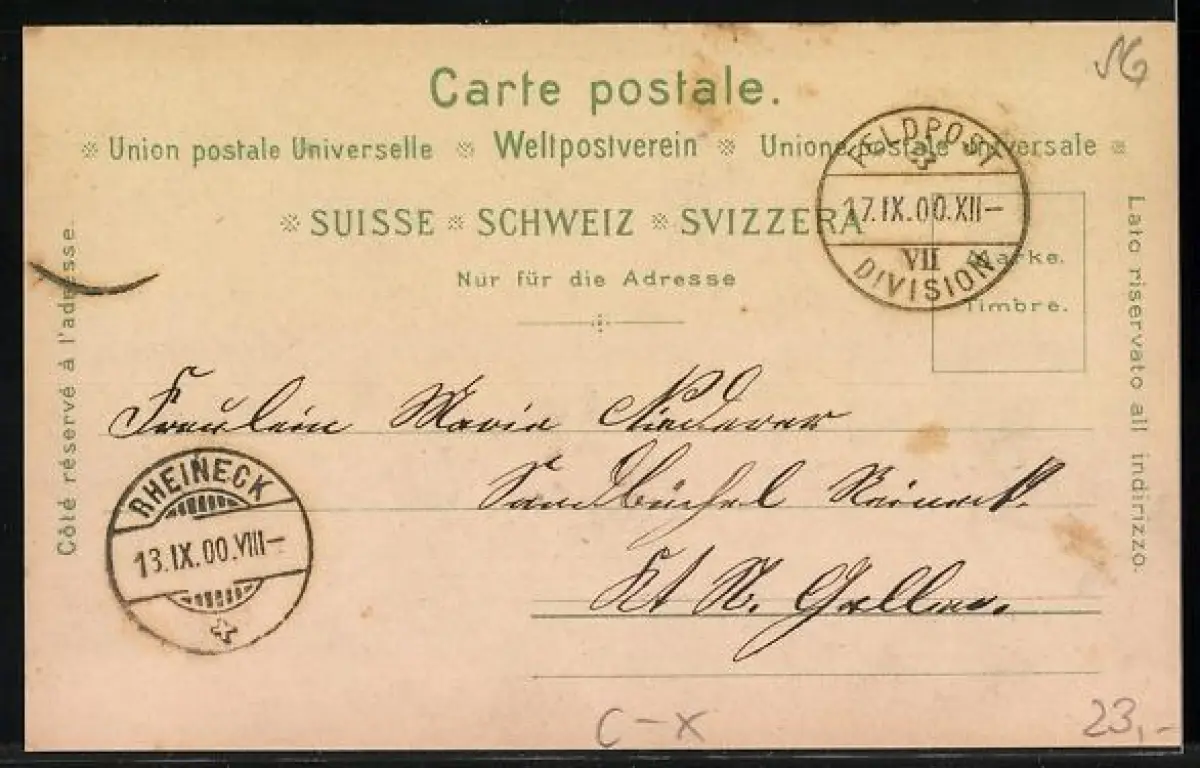 SG
Carte postale.
Union postale Universelle Weltpostverein Unione postale universale
SUISSE SCHWEIZ SVIZZERA
Nur für die Adresse
FELDPOST
17.IX.00.XII–
VII
DIVISION
Marke.
Timbre.
Côté réservé à l'adresse.
Lato riservato all indirizzo.
Fräulein Marie Niederer
Sandbüchel Reineck.
Kt St. Gallen.
RHEINECK
13.IX.00.VIII–
C-X
23,-